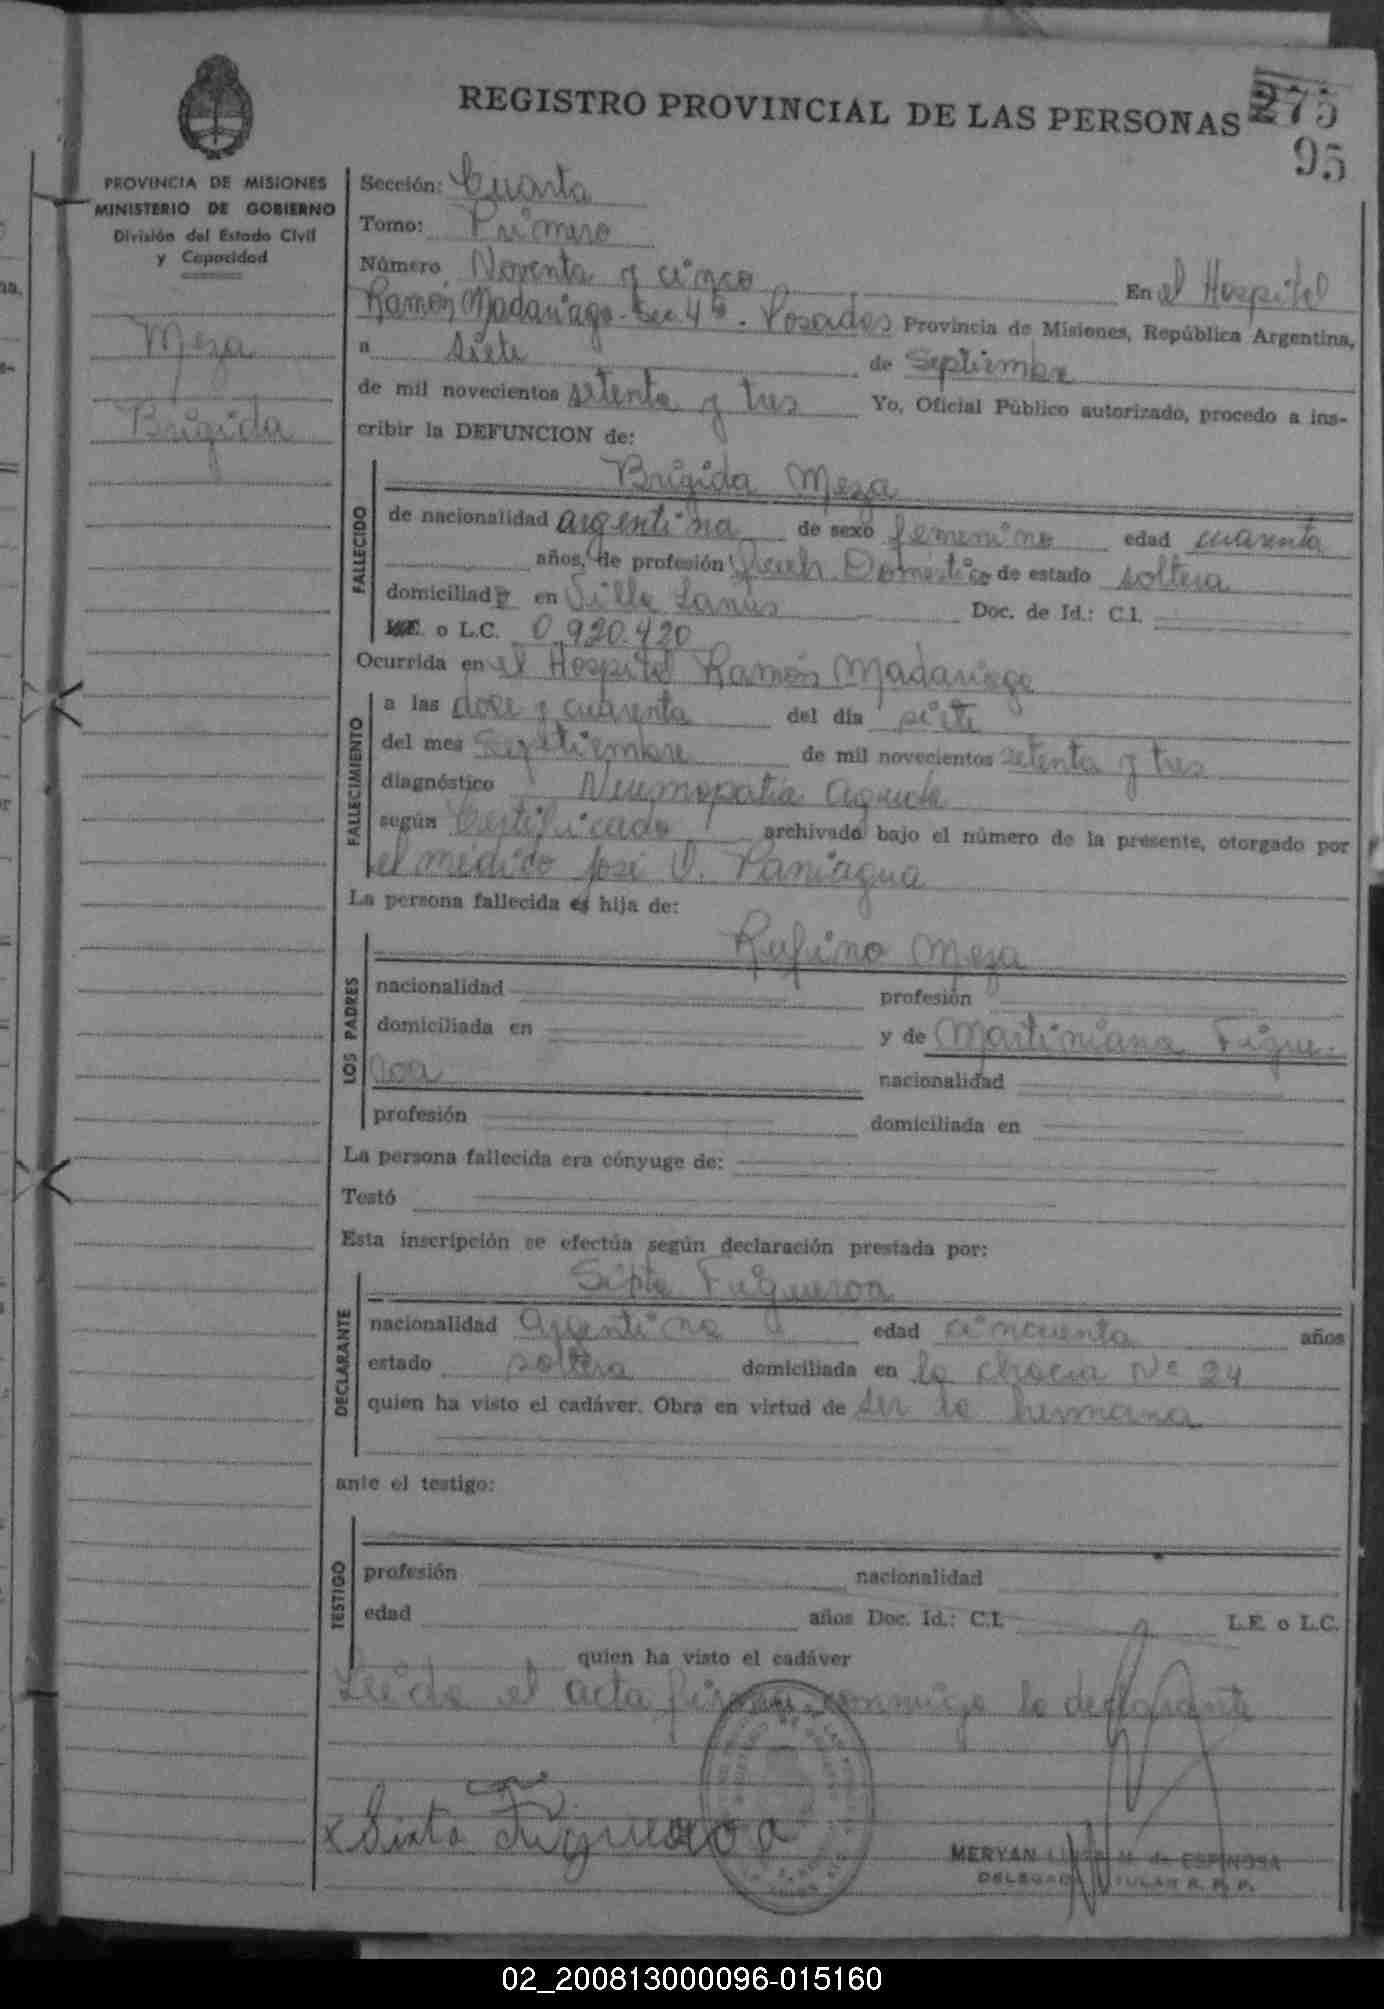 REGISTRO PROVINCIAL DE LAS PERSONAS
275
95
PROVINCIA DE MISIONES
MINISTERIO DE GOBIERNO
División del Estado Civil
y Capacidad
Meza
Brigida
Sección: Cuarta
Tomo: Primero
Número Noventa y cinco En el Hospital
Ramón Madariaga - Sec 4ta. Posadas Provincia de Misiones, República Argentina,
a siete de Septiembre
de mil novecientos setenta y tres Yo, Oficial Público autorizado, procedo a ins-
cribir la DEFUNCION de:
FALLECIDO
Brigida Meza
de nacionalidad argentina de sexo femenino edad cuarenta
años, de profesión Domestico de estado soltera
domiciliada en Villa Lanus Doc. de Id.: C.I.
o L.C. 0.920.420
Ocurrida en el Hospital Ramón Madariaga
FALLECIMIENTO
a las doce y cuarenta del día siete
del mes Septiembre de mil novecientos setenta y tres
diagnóstico Neumopatia Aguda
según Certificado archivado bajo el número de la presente, otorgado por
el médico José V. Paniagua
La persona fallecida es hija de:
LOS PADRES
Rufino Meza
nacionalidad profesión
domiciliada en y de Martiniana Figue-
roa nacionalidad
profesión domiciliada en
La persona fallecida era cónyuge de:
Testó
Esta inscripción se efectúa según declaración prestada por:
DECLARANTE
Sixta Figueroa
nacionalidad argentina edad cincuenta años
estado soltera domiciliada en la chacra Nº 24
quien ha visto el cadáver. Obra en virtud de ser la hermana
ante el testigo:
TESTIGO
profesión nacionalidad
edad años Doc. Id.: C.I. L.E. o L.C.
quien ha visto el cadáver
Leida el acta firma conmigo la declarante
x Sixta Figueroa
MERYAN M. de ESPINOSA
DELEGADA TITULAR R. P. P.
02_200813000096-015160